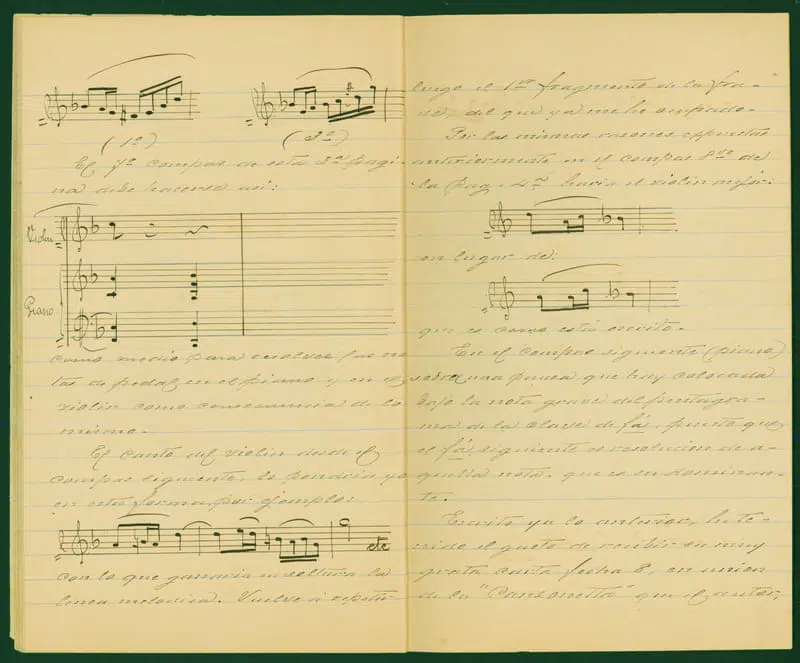 (1º) (2º)
El 7º compas de esta 3ª pagi-
na debe hacerse asi:
Violin
Piano
como medio para resolver las no-
tas de pedal en el piano y en el
violin como consecuencia de lo
mismo.
El canto del violin desde el
compas siguiente, lo pondria yo
en esta forma, por ejemplo:
etc
con lo que ganaria en soltura la
linea melodica. Vuelve á repetir
luego el 1er fragmento de la fra-
se, del que ya me he ocupado.
Por las mismas razones expuestas
anteriormente en el compas 8º de
la pag. 4ª haria el violin mejor:
en lugar de:
que es como está escrito.
En el compas siguiente (piano)
sobra una pausa que hay colocada
bajo la nota grave del pentagra-
ma de la clave de fá, puesto que
el fá, siguiente es resolucion de a-
quella nota, que es su dominan-
te.
Escrito ya lo anterior, he te-
nido el gusto de recibir su muy
grata carta fecha 8, en union
de la "Canzonetta" que el autor,